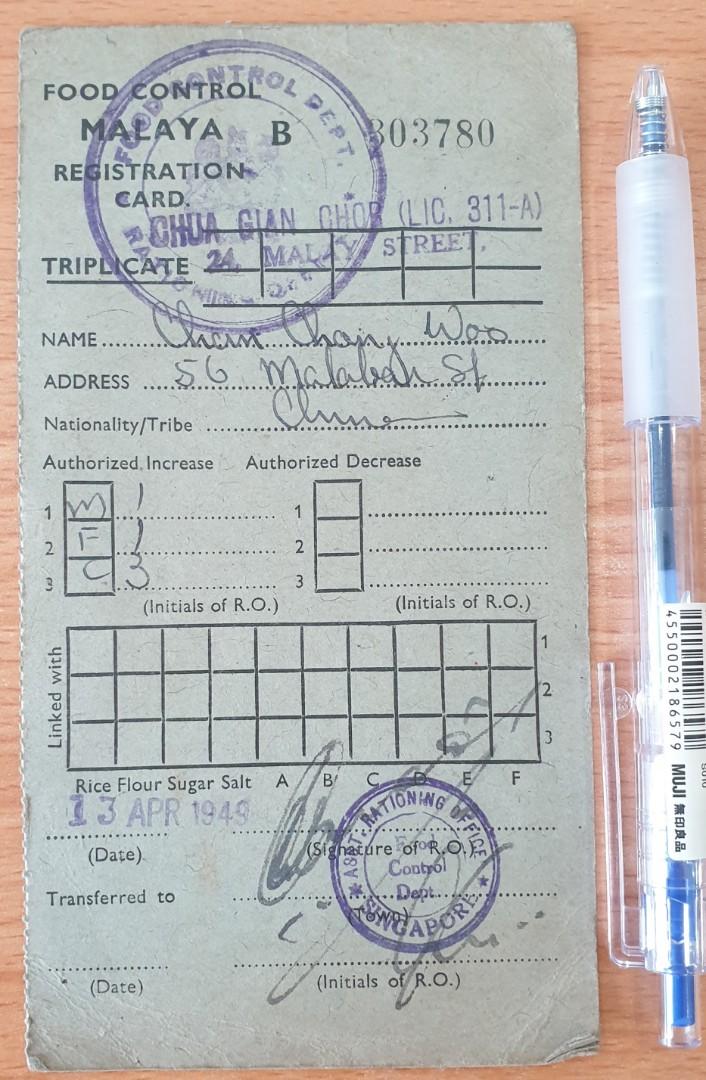 FOOD CONTROL
MALAYA B 303780
REGISTRATION
CARD.
FOOD CONTROL DEPT.
CHUA GIAN CHOR (LIC. 311-A)
24, MALAY STREET.
TRIPLICATE
NAME Chan Chong Woo
ADDRESS 56 Malabah St
Nationality/Tribe
Authorized Increase Authorized Decrease
1 M 1 1
2 F 1 2
3 C 3 3
(Initials of R.O.) (Initials of R.O.)
Linked with
1
2
3
Rice Flour Sugar Salt A B C D E F
13 APR 1949
(Date) (Signature of R.O.)
ASST. RATIONING OFFICE
Food
Control
Dept.
SINGAPORE
Transferred to
(Town)
(Date) (Initials of R.O.)
4550002186579
MUJI 無印良品